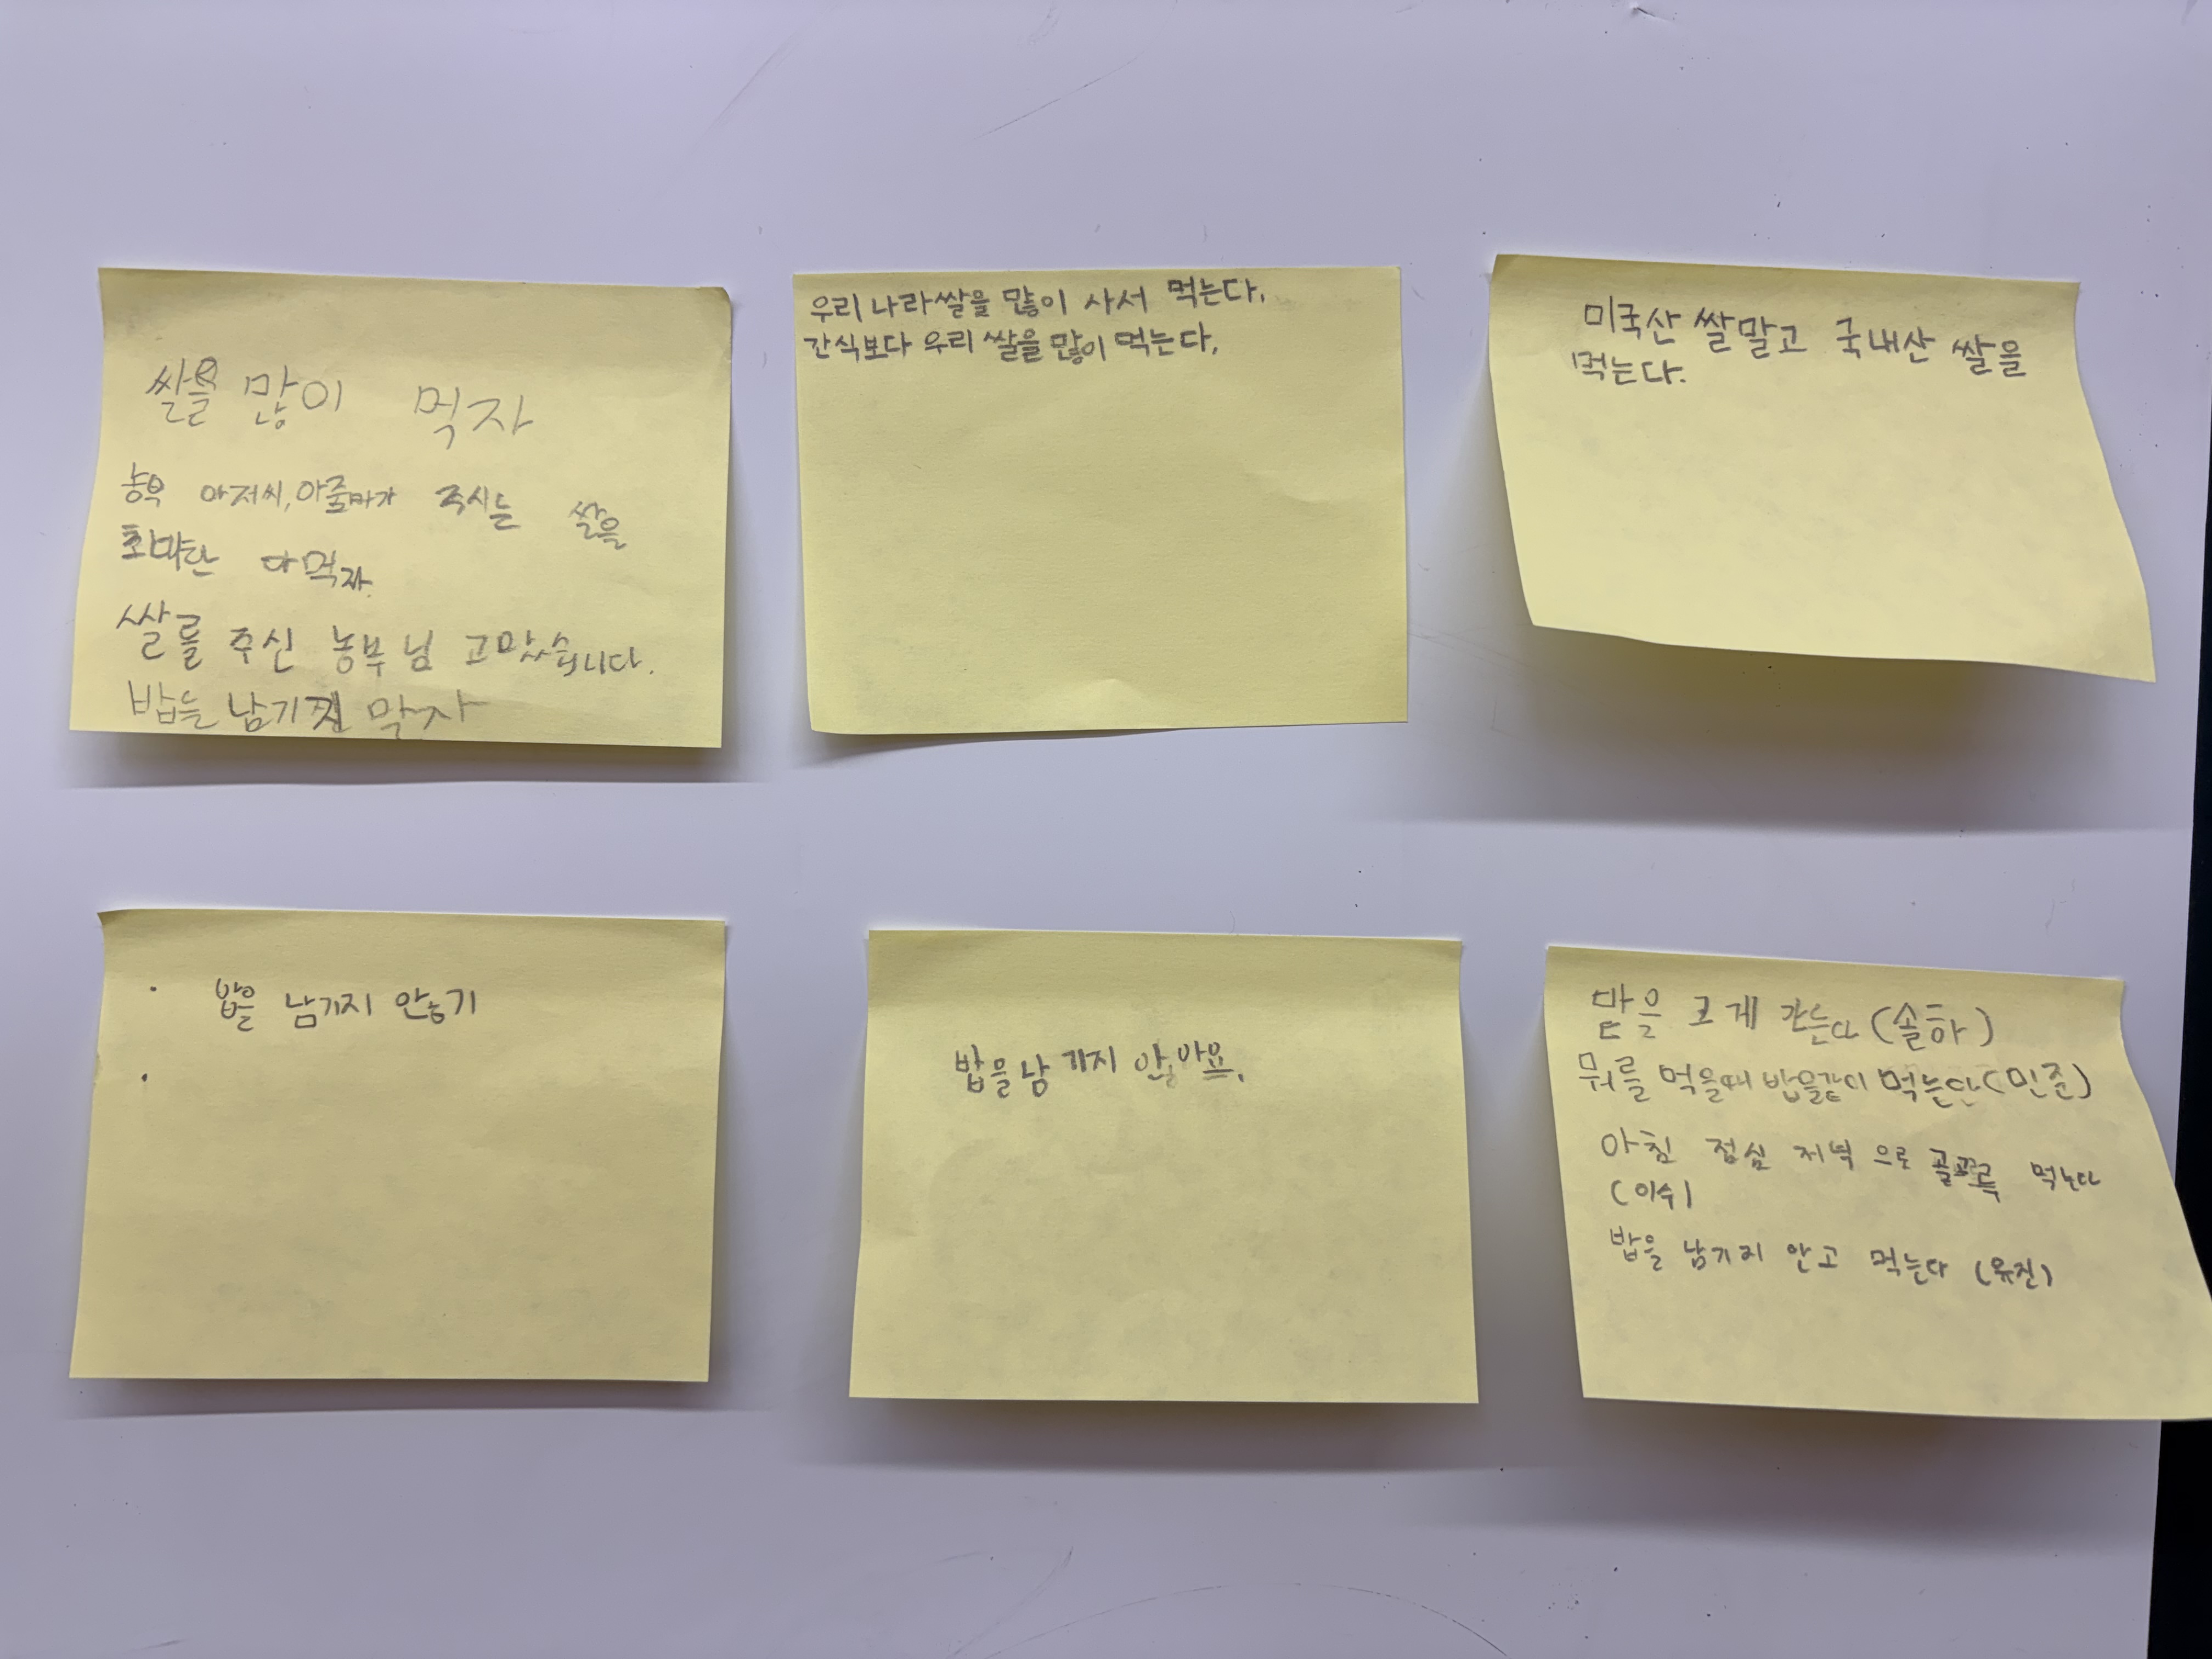 쌀을 많이 먹자
농부 아저씨,아줌마가 주시는 쌀을
다먹자.
쌀를 주신 농부님 고맜습니다.
밥을 남기지 말자
우리나라쌀을 많이 사서 먹는다.
간식보다 우리 쌀을 많이 먹는다.
미국산 쌀말고 국내산 쌀을
먹는다.
· 밥을 남기지 안놓기
·
밥을남기지 안아요.
땁을 크게 갇는다 (솔하)
뭐를 먹을때 밥을같이 먹는다 (민준)
아침 점심 저녁 으로 먹는다
(이수)
밥을 남기지 안고 먹는다 (유진)